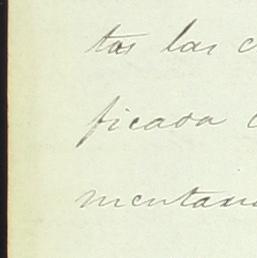 tas las c
ficada c
mentaria